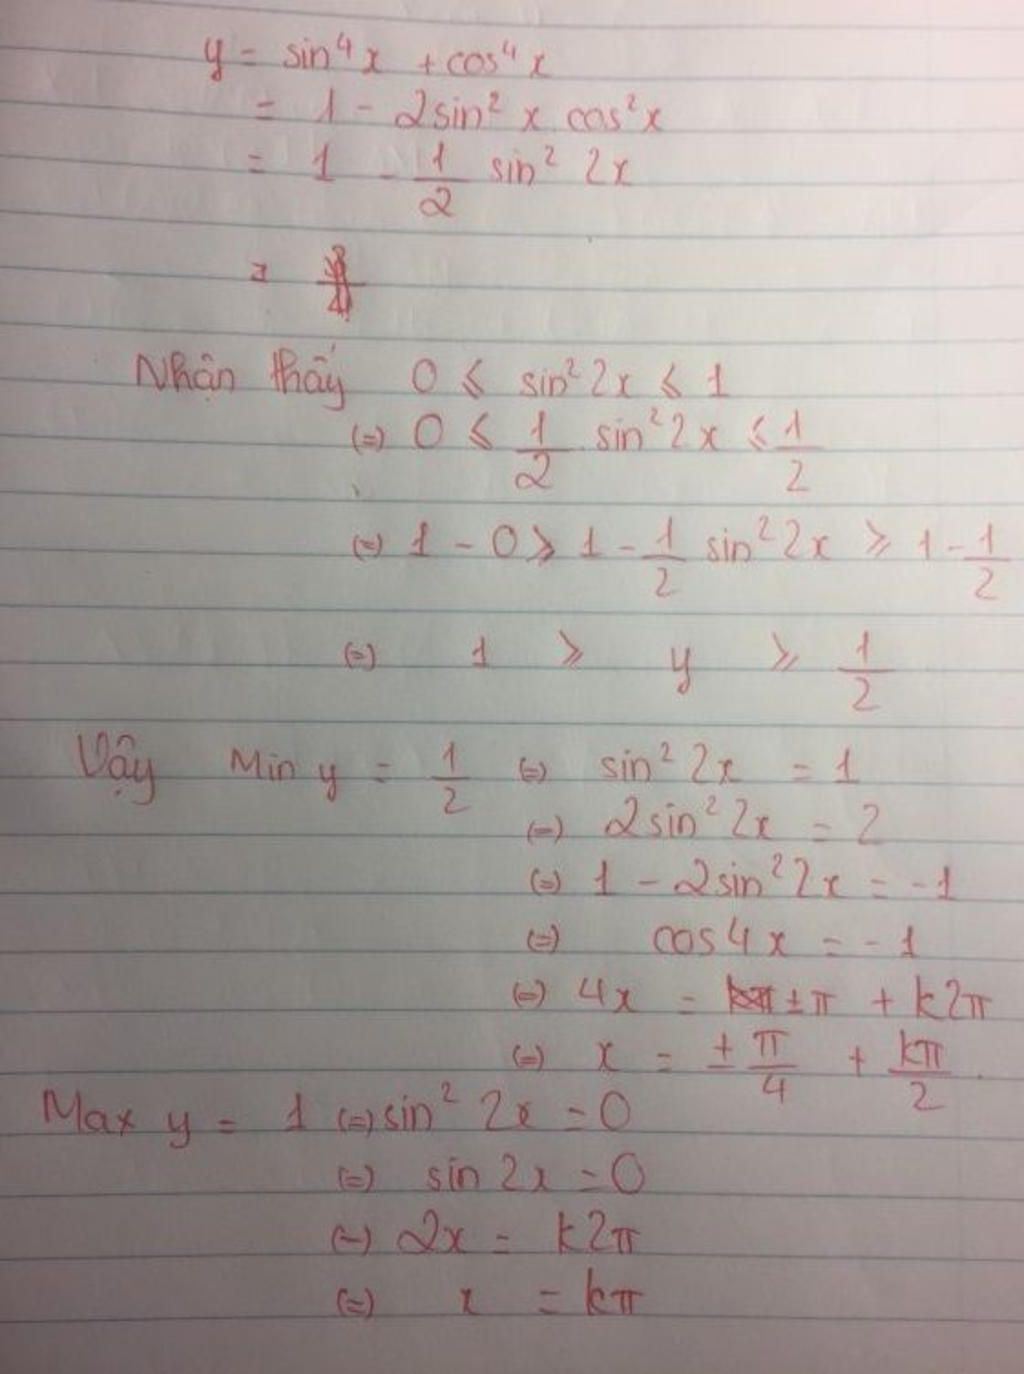 y = sin⁴x + cos⁴x
= 1 - 2sin² x cos²x
= 1 - 1/2 sin² 2x
=
Nhận thấy 0 ≤ sin² 2x ≤ 1
(=) 0 ≤ 1/2 sin² 2x ≤ 1/2
(=) 1 - 0 ≥ 1 - 1/2 sin² 2x ≥ 1 - 1/2
(=) 1 ≥ y ≥ 1/2
Vậy Min y = 1/2 (=) sin² 2x = 1
(=) 2sin² 2x = 2
(=) 1 - 2sin² 2x = -1
(=) cos4x = -1
(=) 4x = ±π + k2π
(=) x = ± π/4 + kπ/2
Max y = 1 (=) sin² 2x = 0
(=) sin 2x = 0
(=) 2x = k2π
(=) x = kπ